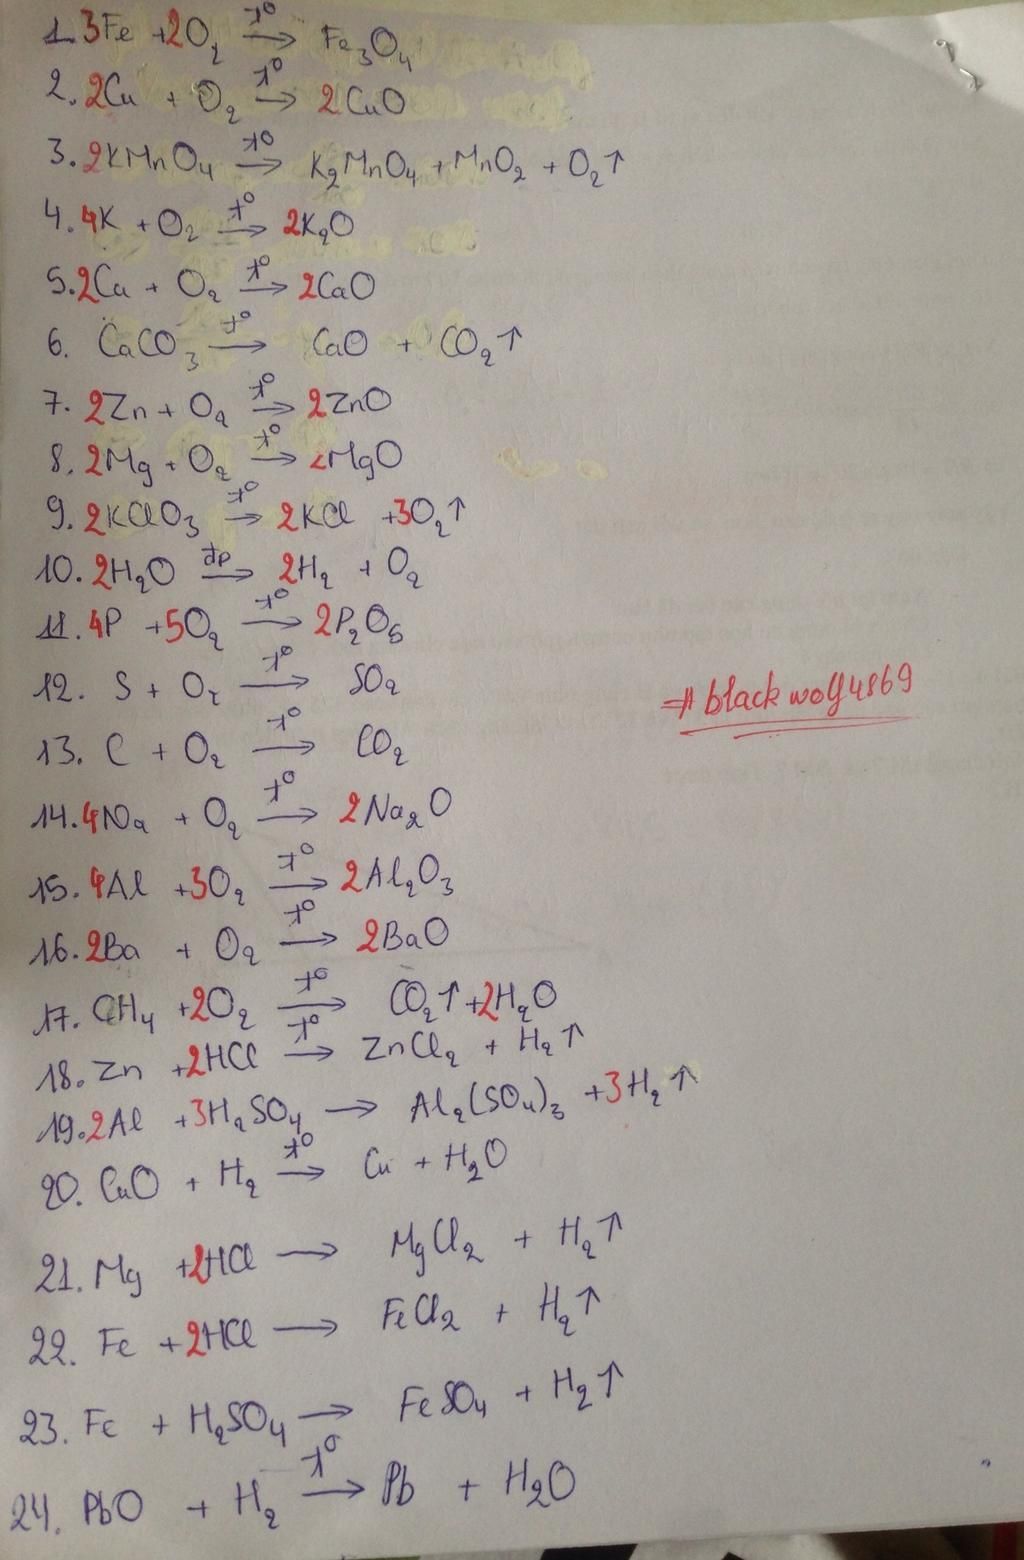 1. 3Fe + 2O₂ →(t⁰) Fe₃O₄
2. 2Cu + O₂ →(t⁰) 2CuO
3. 2KMnO₄ →(t⁰) K₂MnO₄ + MnO₂ + O₂↑
4. 4K + O₂ →(t⁰) 2K₂O
5. 2Ca + O₂ →(t⁰) 2CaO
6. CaCO₃ →(t⁰) CaO + CO₂↑
7. 2Zn + O₂ →(t⁰) 2ZnO
8. 2Mg + O₂ →(t⁰) 2MgO
9. 2KClO₃ →(t⁰) 2KCl + 3O₂↑
10. 2H₂O →(đp) 2H₂ + O₂
11. 4P + 5O₂ →(t⁰) 2P₂O₅
12. S + O₂ →(t⁰) SO₂
⇒ blackwolf4869
13. C + O₂ →(t⁰) CO₂
14. 4Na + O₂ →(t⁰) 2Na₂O
15. 4Al + 3O₂ →(t⁰) 2Al₂O₃
16. 2Ba + O₂ →(t⁰) 2BaO
17. CH₄ + 2O₂ →(t⁰) CO₂↑ + 2H₂O
18. Zn + 2HCl →(t⁰) ZnCl₂ + H₂↑
19. 2Al + 3H₂SO₄ → Al₂(SO₄)₃ + 3H₂↑
20. CuO + H₂ →(t⁰) Cu + H₂O
21. Mg + 2HCl → MgCl₂ + H₂↑
22. Fe + 2HCl → FeCl₂ + H₂↑
23. Fe + H₂SO₄ → FeSO₄ + H₂↑
24. PbO + H₂ →(t⁰) Pb + H₂O